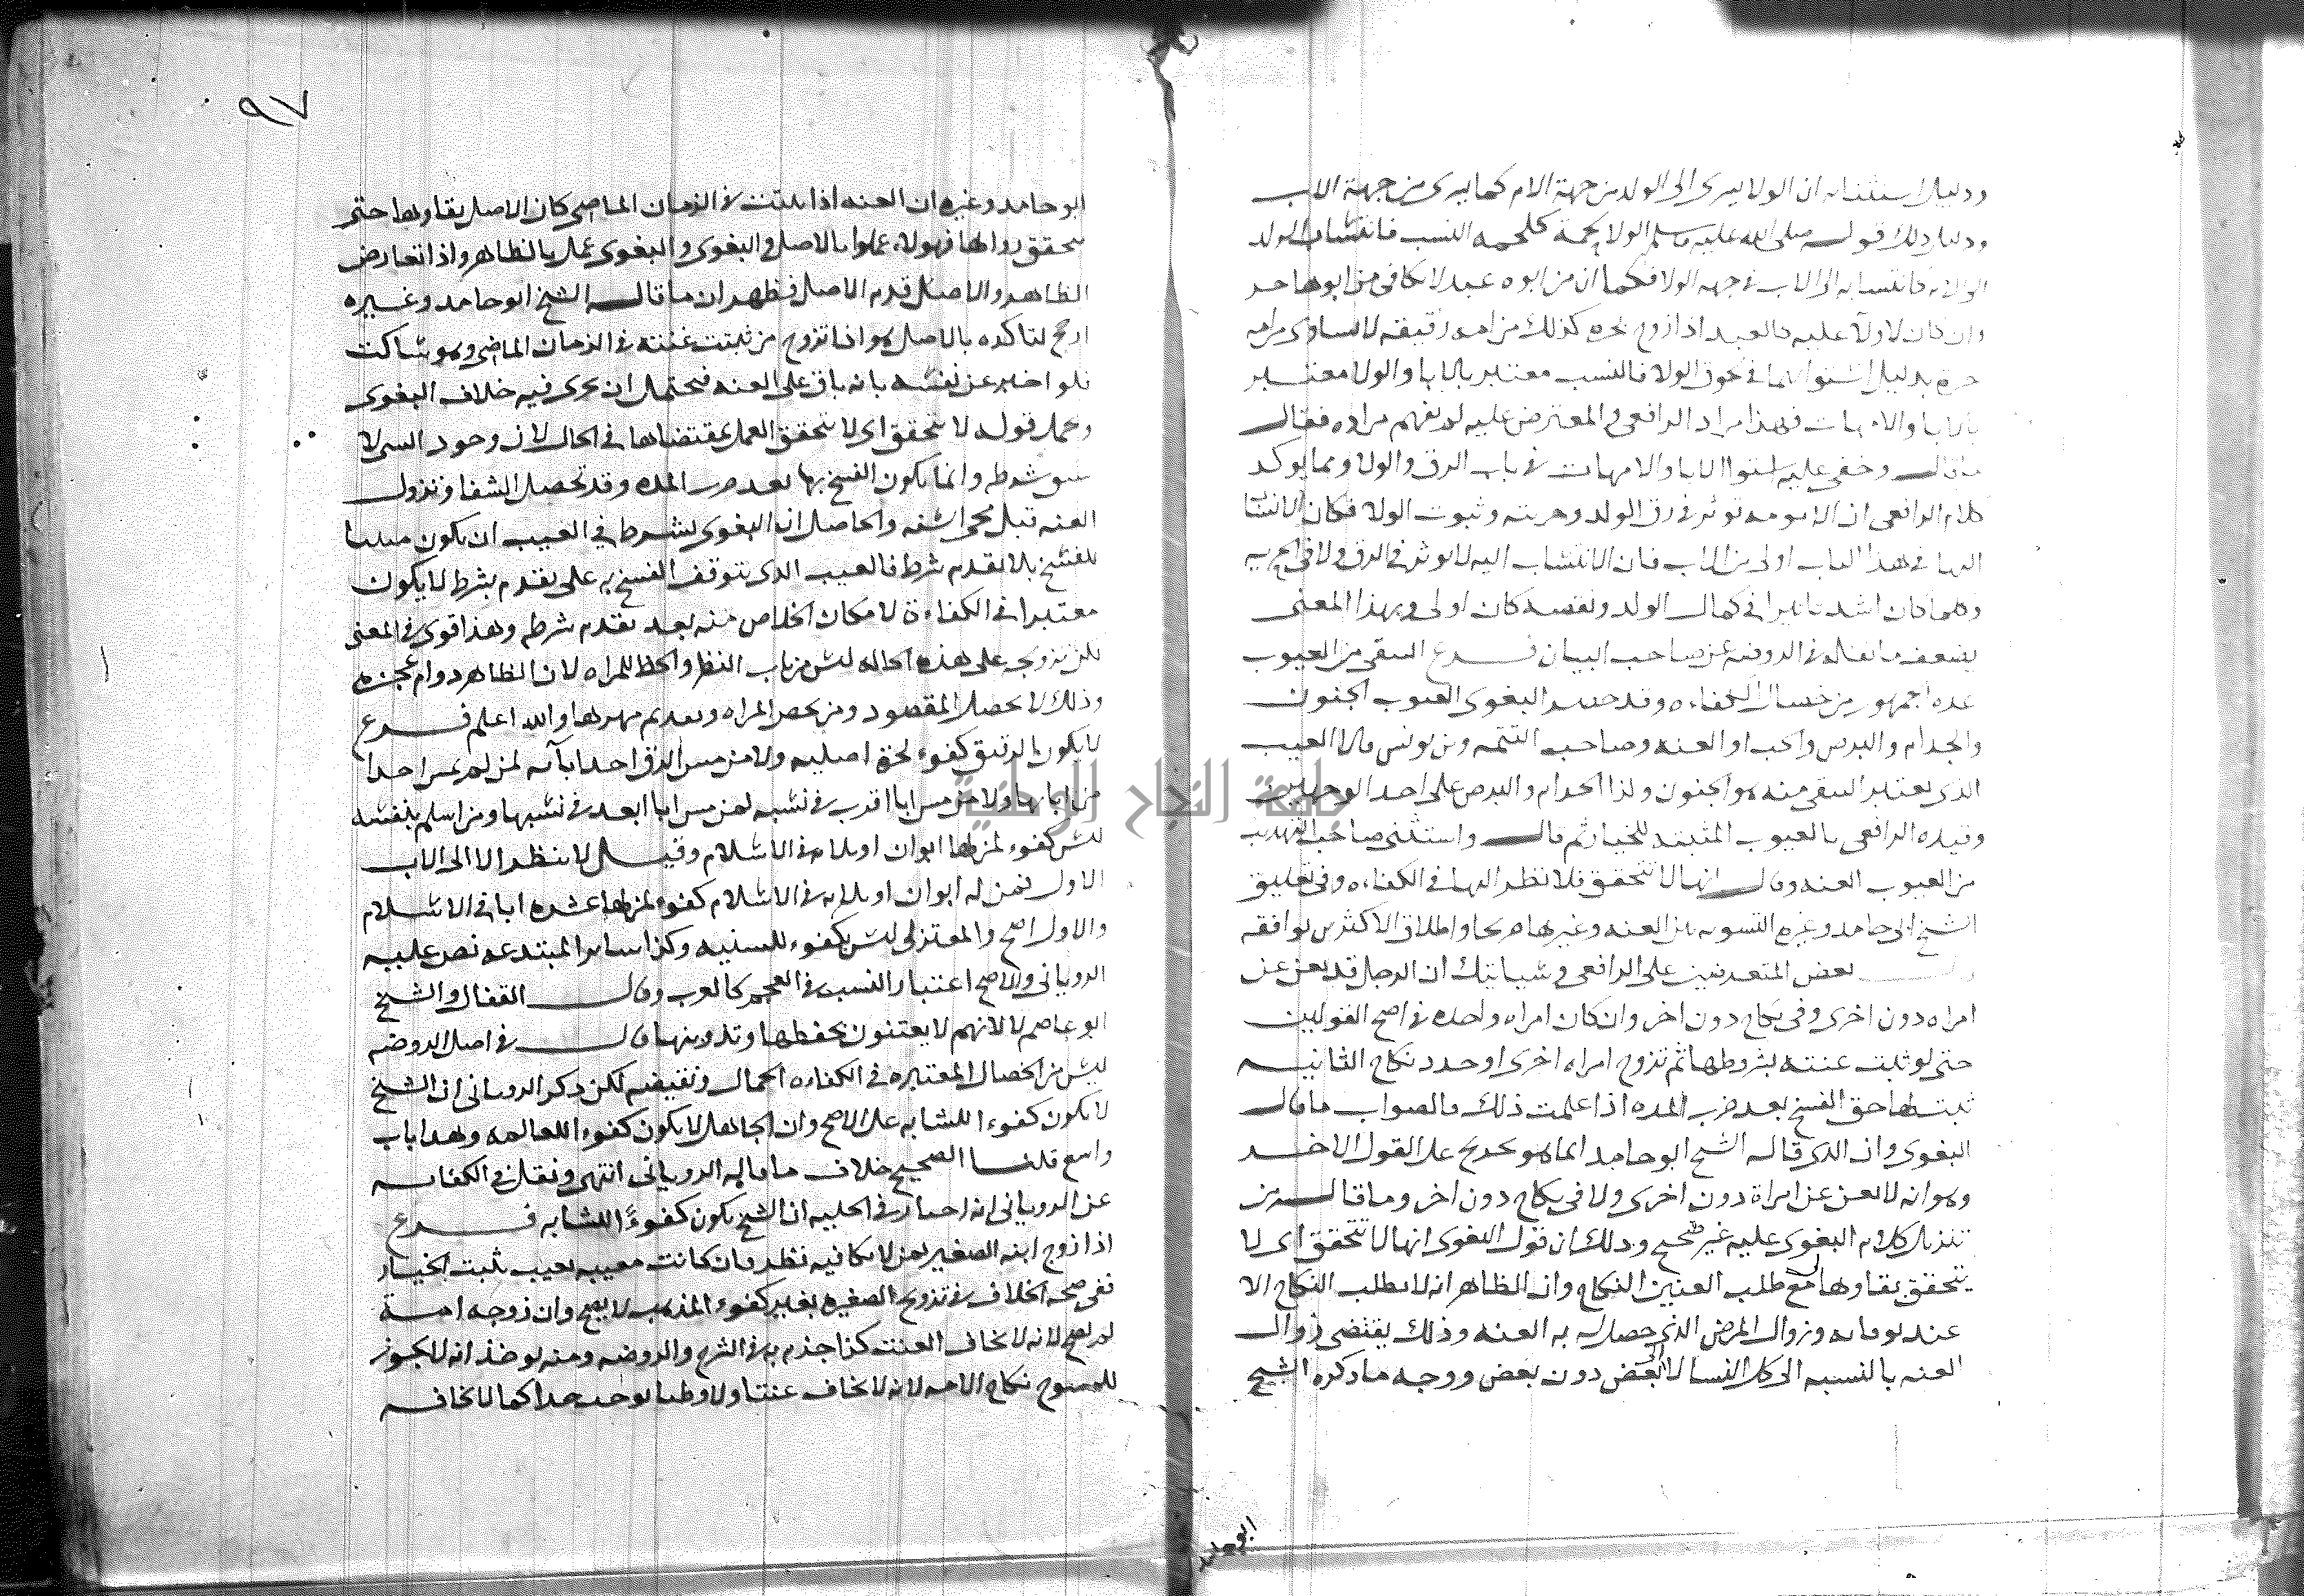 ودليل استثنائه ان الولا يسرى الى الولد من جهة الام كما يسرى من جهة الاب
ودليل ذلك قوله صلى الله عليه وسلم الولا لحمة كلحمه النسب فانتساب الولد
الى الام كانتسابه الى الاب في جهه الولا فكما ان من ابوه عبد لا يكافي من ابوها حر
وان كان لا ولآ عليه كالعبد اذا زوج بحره كذلك من امه رقيقه لا يساوى من امه
حرة بدليل استوائهما في حق الولا فالنسب معتبر بالابا والولا معتبر
بالابا والامهات فهذا مراد الرافعي والمعترض عليه لم يفهم مراده فقال
ما قال وخفي عليه استوا الابا والامهات في باب الرق والولا ومما يوكد
كلام الرافعي ان الامومه توثر في رق الولد وحريته وثبوت الولا فكان الانتساب
اليها في هذا الباب اولى من الاب فان الانتساب اليه لا يوثر في الرق ولا في الحريه
وكلما كان اشد تاثيرا في كمال الولد ونقصه كان اولى وبهذا المعنى
يضعف ما نقله في الروضه عن صاحب البيان فرع التنقي من العيوب
عده الجمهور من خصال الكفاءه وقد البغوى العيوب الجنون
والجذام والبرص والجب والعنه وصاحب التتمه وبن يونس قالا العيب
الذى يعتبر التنقي منه هو الجنون وكذا الجذام والبرص على احد الوجهين
وقيده الرافعي بالعيوب المثبته للخيار ثم قال واستثنى صاحب التهذيب
من العيوب العنه وقال انها لا تتحقق فلا نظر اليها في الكفاءه وفي تعليق
الشيخ ابي حامد وغيره التسويه بين العنه وغيرها صريحا واطلاق الاكثرين يوافقه
بعض المتعرضين على الرافعي وسياتيك ان الرجل قد يعن عن
امراه دون اخرى وفي نكاح دون اخر وان كان امراه واحده في اصح القولين
حتى لو ثبتت عنته بشروطها ثم تزوج امراه اخرى او جدد نكاح الثانيه
ثبت لها حق الفسخ بعد ضرب المده اذا علمت ذلك فالصواب ما قال
البغوى وان الذى قاله الشيخ ابو حامد انما هو تخريج على القول الاخر
وهو انه لا يعن عن امراة دون اخرى ولا في نكاح دون اخر وما قاله من
تنزيل كلام البغوى عليه غير صحيح وذلك ان قول البغوى انها لا تتحقق اى لا
يتحقق بقاوها مع طلب العنين النكاح وان الظاهر انه لا يطلب النكاح الا
عند توقانه وزوال المرض الذى حصل له به العنه وذلك يقتضي زوال
العنه بالنسبه الى كل النسا لا الى بعض دون بعض ووجه ما ذكره الشيخ
ابو حامد
٩٧
ابو حامد وغيره ان العنه اذا ثبتت في الزمان الماضي كان الاصل بقاوها حتى
يتحقق زوالها فهولاء عملوا بالاصل والبغوى عمل بالظاهر واذا تعارض
الظاهر والاصل قدم الاصل فظهر ان ما قاله الشيخ ابو حامد وغيره
ارجح لتاكده بالاصل هو اذا تزوج من ثبتت عنته في الزمان الماضي وهو ساكت
فلو اخبر عن نفسه بانه باق على العنه فيحتمل ان يجرى فيه خلاف البغوى
وحمل قوله لا تتحقق اى لا يتحقق العمل بمقتضاها في الحال لان وجود الشي لا
يسبق شرطه وانما يكون الفسخ بها بعد ضرب المده وقد تحصل الشفا وتزول
العنه قبل مجي السنه والحاصل ان البغوى يشترط في العيب ان يكون مثبتا
للفسخ بلا تقدم شرط فالعيب الذى يتوقف الفسخ به على تقدم شرط لا يكون
معتبرا في الكفاءة لامكان الخلاص منه بعد تقدم شرطه وهذا قوى في المعنى
لكن تزويجه على هذه الحاله ليس من باب النظر والحظ للمراه لان الظاهر دوام عجزه
وذلك لا يحصل المقصود ومن يحصن المراه ويعدتم مهرها والله اعلم فرع
لا يكون الرقيق كفوء لحرة اصليه ولا من مس الرق احد ابآئه لمن لم يمس احدا
من ابائها ولا من مس ابا اقرب في نسبه لمن مس ابا ابعد في نسبها ومن اسلم بنفسه
ليس كفوء لمن لها ابوان او ثلاثه في الاسلام وقيل لا ينظر الا الى الاب
الاول فمن له ابوان او ثلاثه في الاسلام كفوء لمن لها عشره ابا في الاسلام
والاول اصح والمعتزلي ليس بكفوء للسنيه وكذا سائر المبتدعه نص عليه
الروياني والاصح اعتبار النسب في العجم كالعرب وقال القفال والشيخ
ابو عاصم لا لانهم لا يعتنون بحفظها وتدوينها قال في اصل الروضه
ليس من الخصال المعتبره في الكفاءه الجمال ونقيضه لكن ذكر الروياني ان الشيخ
لا يكون كفوءا للشابه على الاصح وان الجاهل لا يكون كفوءا للعالمه وهذا باب
واسع قلت الصحيح خلاف ما قاله الروياني انتهى ونقل في الكفايه
عن الروياني انه اختار في الحليه ان الشيخ يكون كفوءًا للشابه فرع
اذا زوج ابنه الصغير بمن لا يكافيه نظر فان كانت معيبه بعيب يثبت الخيار
ففي صحه الخلاف في تزويج الصغيره بغير كفوء المذهب لا يصح وان زوجه امة
لم يصح لانه لا يخاف العنت كذا جزم به في الشرح والروضه ومنه يوخذ انه لا يجوز
للممسوح نكاح الامه لانه لا يخاف عنتا ولا وطيا يوجب حدا كما لا يخافه